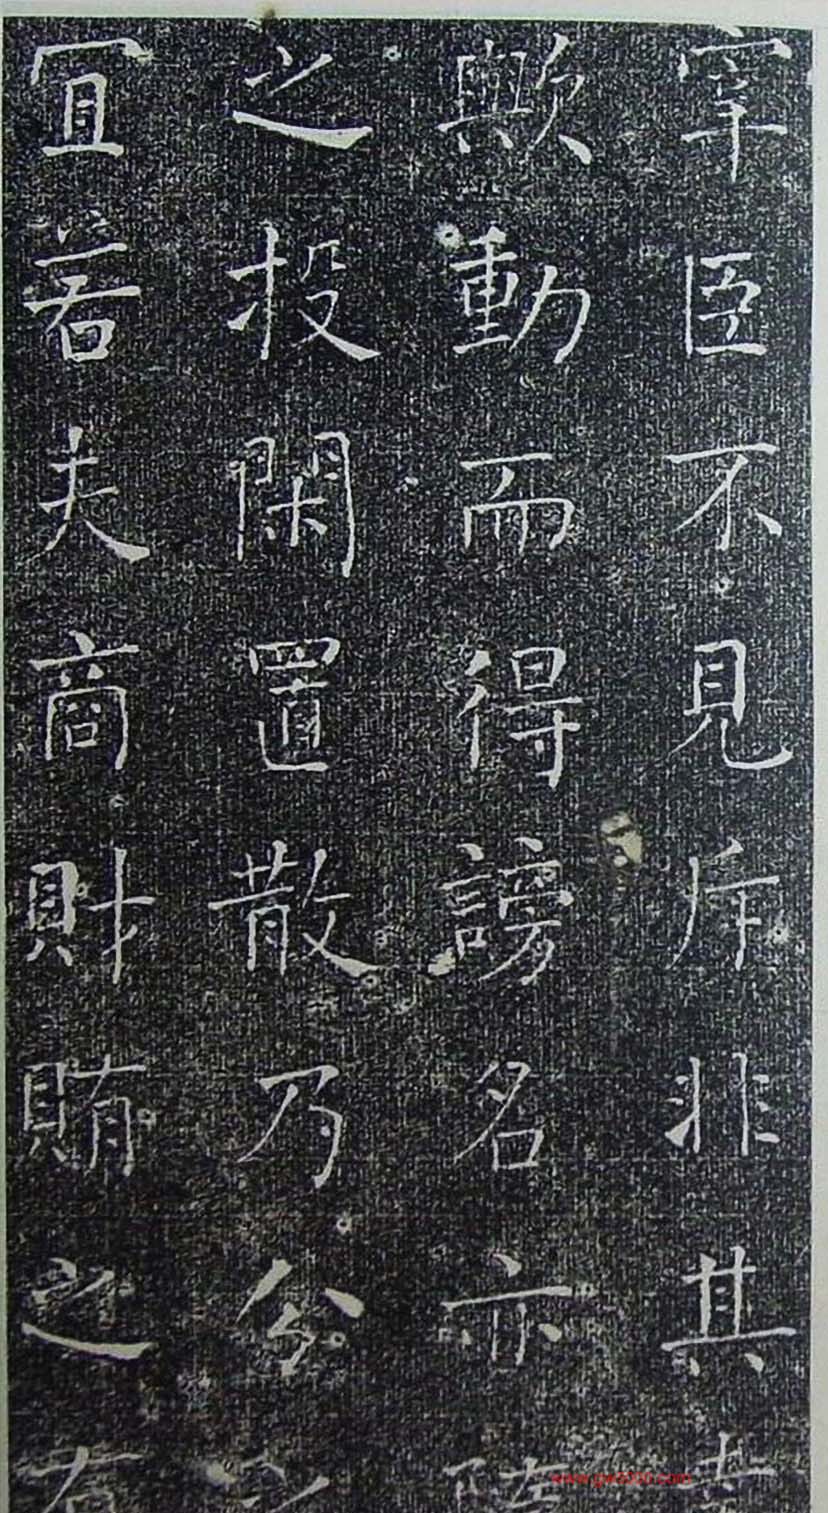 宰臣不見斥非其幸
歟動而得謗名亦隨
之投閑置散乃分之
宜若夫商財賄之有
www.gw8000.com